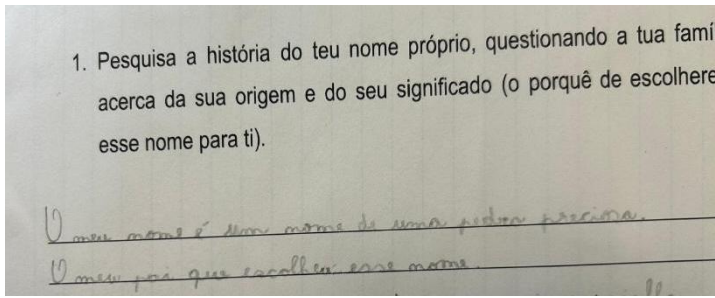 1. Pesquisa a história do teu nome próprio, questionando a tua famí
acerca da sua origem e do seu significado (o porquê de escolhere
esse nome para ti).
O meu nome é um nome de uma pedra preciosa.
O meu pai que escolheu esse nome.